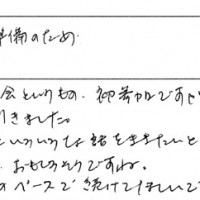 準備のため
会というもの、初参加ですが
引きました。
いろいろな話をききたいと
おもしろそうですね。
のペースで続けてほしいで